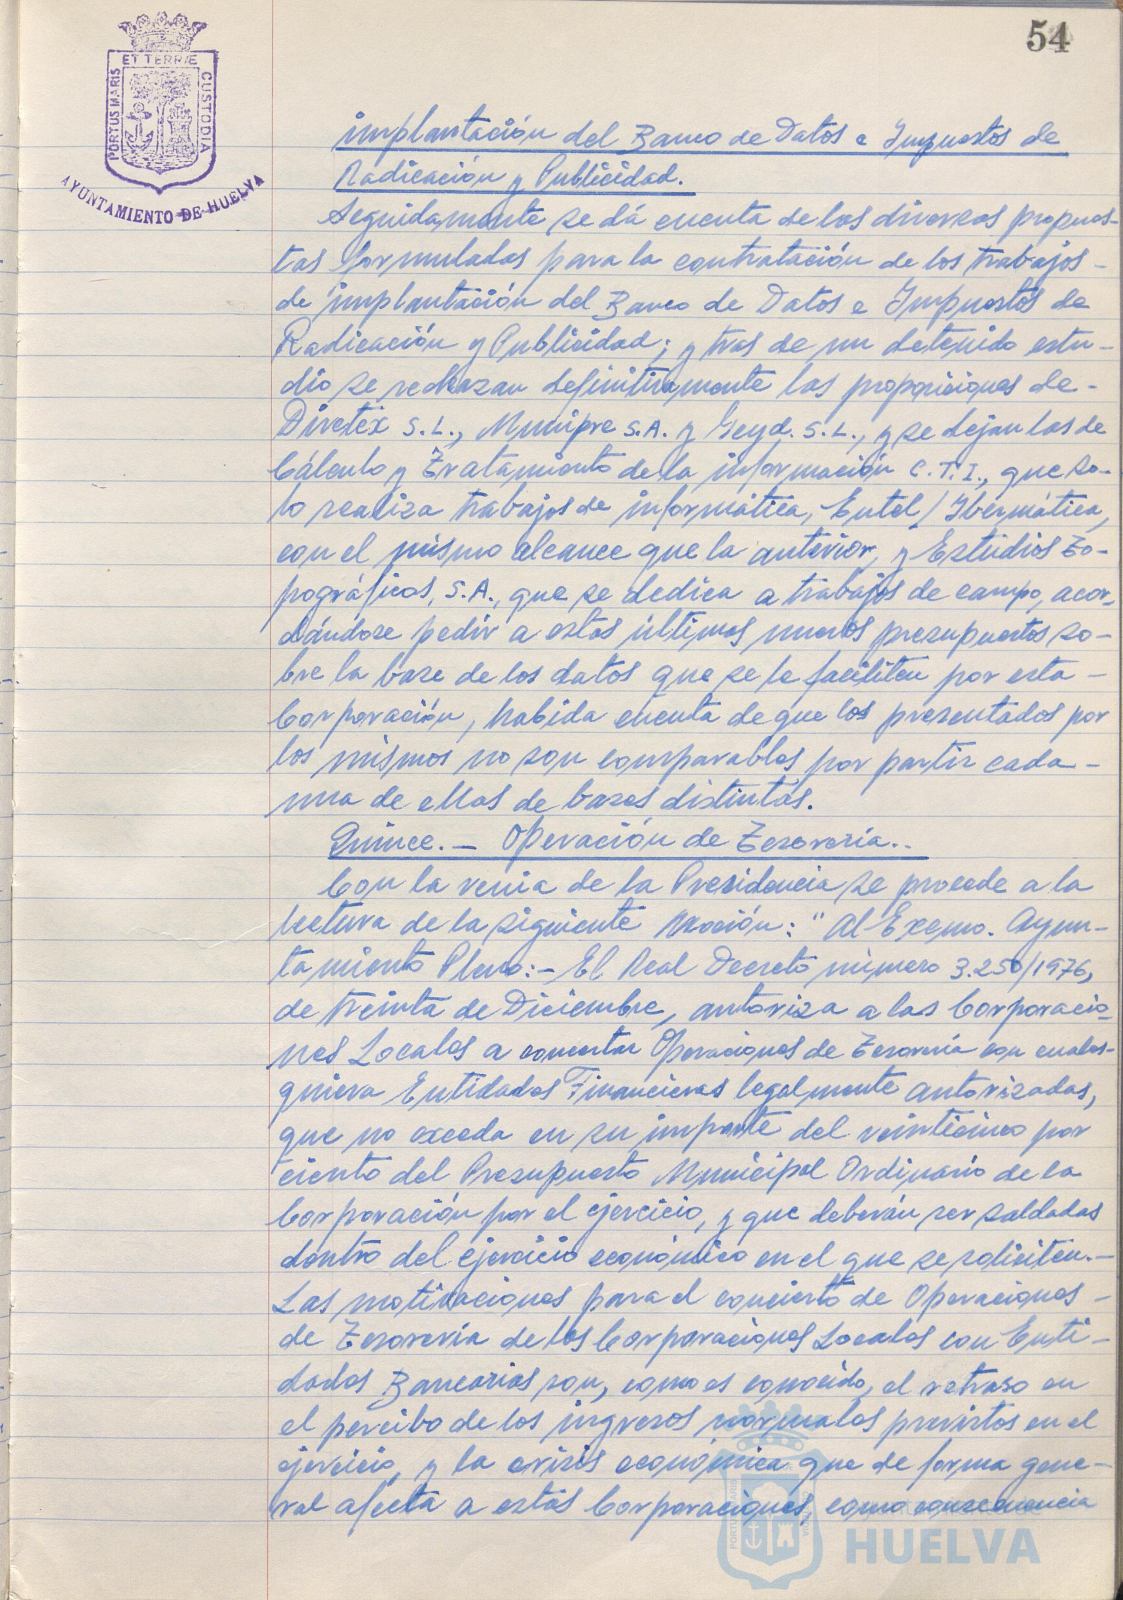 54
ET TERRÆ
PORTUS MARIS
CUSTODIA
AYUNTAMIENTO DE HUELVA
implantación del Banco de Datos e Impuestos de
Radicación y Publicidad.
Seguidamente se dá cuenta de los diversas propues-
tas formuladas para la contratación de los trabajos-
de implantación del Banco de Datos e Impuestos de
Radicación y Publicidad; y tras de un detenido estu-
dio se rechazan definitivamente las proposiciones de-
Diretex S.L., Municipre S.A. y Geyd. S.L., y se dejan las de
Cálculo y Tratamiento de la información C.T.I., que so-
lo realiza trabajos de informática, Entel/Ibermática,
con el mismo alcance que la anterior, y Estudios To-
pográficos, S.A., que se dedica a trabajos de campo, acor-
dándose pedir a estos últimos nuevos presupuestos so-
bre la base de los datos que se le faciliten por esta-
Corporación, habida cuenta de que los presentados por
los mismos no son comparables por partir cada-
una de ellas de bases distintas.
Quince.- Operación de Tesorería..
Con la venia de la Presidencia se procede a la
lectura de la siguiente Moción: "Al Excmo. Ayun-
tamiento Pleno:- El Real Decreto número 3.250/1976,
de treinta de Diciembre, autoriza a las Corporacio-
nes Locales a concertar Operaciones de Tesorería con cuales-
quiera Entidades Financieras legalmente autorizadas,
que no exceda en su importe del veinticinco por
ciento del Presupuesto Municipal Ordinario de la
Corporación por el ejercicio, y que deberán ser saldadas
dentro del ejercicio económico en el que se soliciten.-
Las motivaciones para el concierto de Operaciones-
de Tesorería de las Corporaciones Locales con Enti-
dades Bancarias son, como es conocido, el retraso en
el percibo de los ingresos normales previstos en el
ejercicio, y la crisis económica que de forma gene-
ral afecta a estas Corporaciones, como consecuencia
HUELVA